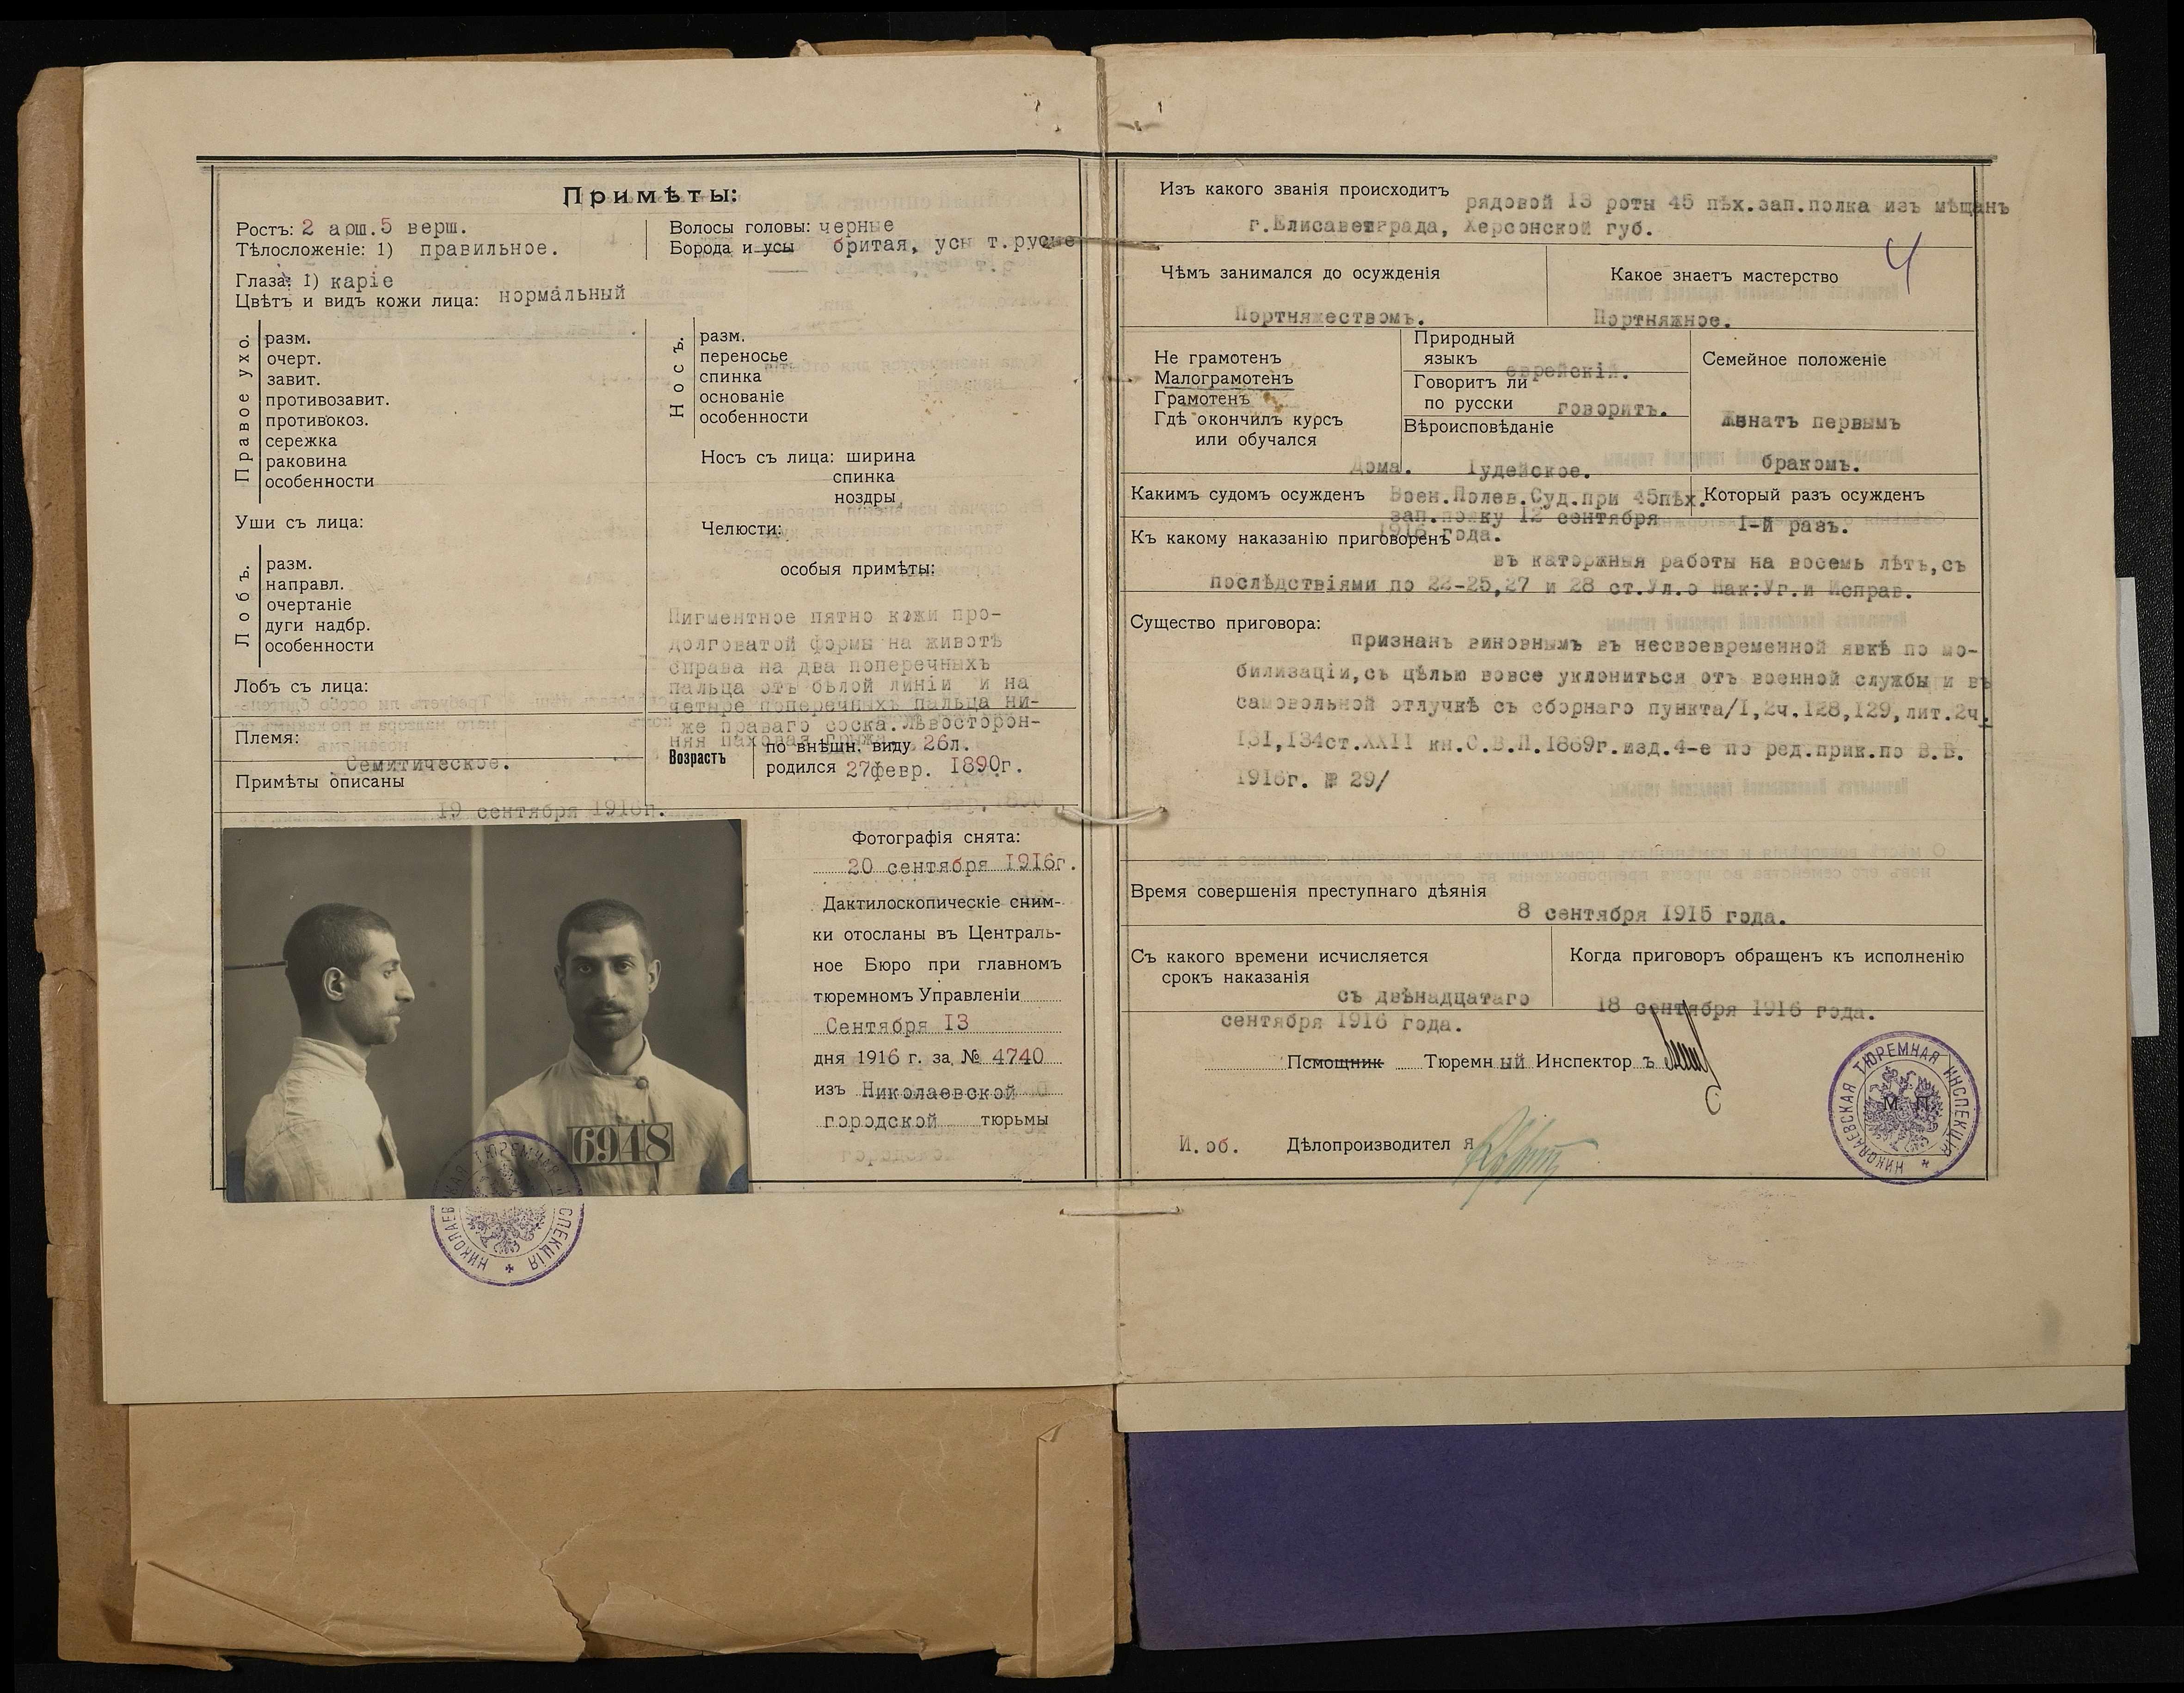 Примѣты:
Ростъ: 2 арш. 5 верш.
Тѣлосложеніе: 1) правильное.
Глаза: 1) каріе
Цвѣтъ и видъ кожи лица: нормальный
Волосы головы: черные
Борода и усы бритая, усы т.русые
Правое ухо.
разм.
очерт.
завит.
противозавит.
противокоз.
сережка
раковина
особенности
Носъ.
разм.
переносье
спинка
основаніе
особенности
Носъ съ лица: ширина
спинка
ноздры
Уши съ лица:
Челюсти:
Лобъ.
разм.
направл.
очертаніе
дуги надбр.
особенности
Лобъ съ лица:
особыя примѣты:
Пигментное пятно кожи про-
долговатой формы на животѣ
справа на два поперечныхъ
пальца отъ бѣлой линіи и на
четыре поперечныхъ пальца ни-
же праваго соска. Лѣвосторон-
няя паховая грыжа.
Племя:
Семитическое.
Примѣты описаны
19 сентября 1916г.
Возрастъ
по внѣшн. виду 26л.
родился 27февр. 1890г.
Фотографія снята:
20 сентября 1916г.
Дактилоскопическіе сним-
ки отосланы въ Централь-
ное Бюро при главномъ
тюремномъ Управленіи
Сентября 13
дня 1916 г. за № 4740
изъ Николаевской
городской тюрьмы
6948
НИКОЛАЕВСКАЯ ТЮРЕМНАЯ ИНСПЕКЦІЯ
Изъ какого званія происходитъ рядовой 13 роты 45 пѣх.зап.полка изъ мѣщанъ
г.Елисаветграда, Херсонской губ.
4
Чѣмъ занимался до осужденія
Портняжествомъ.
Какое знаетъ мастерство
Портняжное.
Не грамотенъ
Малограмотенъ
Грамотенъ
Гдѣ окончилъ курсъ
или обучался
Дома.
Природный
языкъ еврейскій.
Говоритъ ли
по русски говоритъ.
Вѣроисповѣданіе
Іудейское.
Семейное положеніе
Женатъ первымъ
бракомъ.
Какимъ судомъ осужденъ Воен.Полев.Суд.при 45пѣх.
зап.полку 12 сентября
1916 года.
Который разъ осужденъ
1-й разъ.
Къ какому наказанію приговоренъ
въ каторжныя работы на восемь лѣтъ,съ
послѣдствіями по 22-25,27 и 28 ст.Ул.о Нак:Уг.и Исправ.
Существо приговора:
признанъ виновнымъ въ несвоевременной явкѣ по мо-
билизаціи,съ цѣлью вовсе уклониться отъ военной службы и въ
самовольной отлучкѣ съ сборнаго пункта/1,2ч.128,129,лит.2ч.
131,134ст.XXII кн.С.В.П.1869г.изд.4-е по ред.прик.по В.В.
1916г. № 29/
Время совершенія преступнаго дѣянія
8 сентября 1915 года.
Съ какого времени исчисляется
срокъ наказанія
съ двѣнадцатаго
сентября 1916 года.
Когда приговоръ обращенъ къ исполненію
18 сентября 1916 года.
Помощник Тюремный Инспекторъ
И.об. Дѣлопроизводителя
М. П.
НИКОЛАЕВСКАЯ ТЮРЕМНАЯ ИНСПЕКЦІЯ